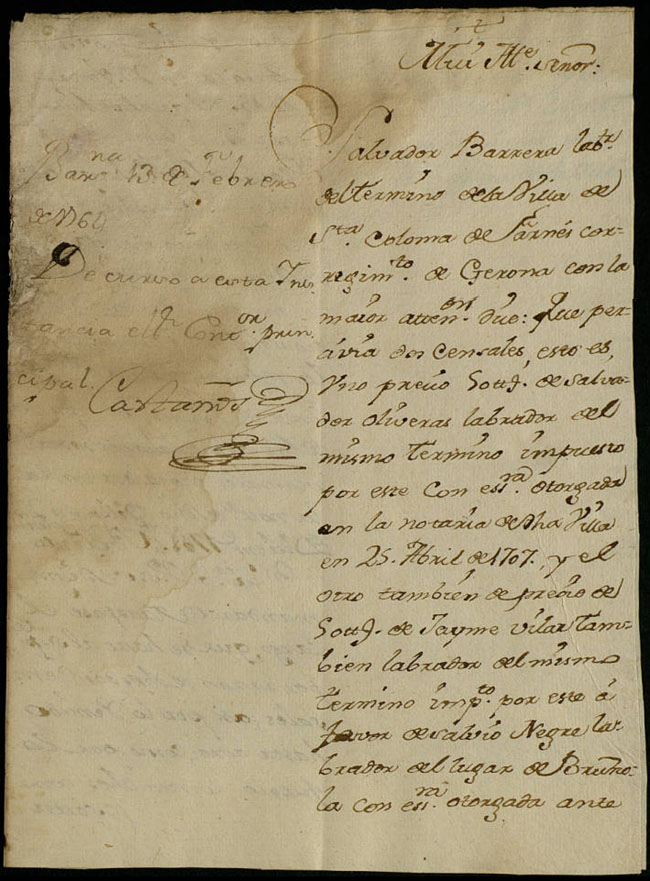 Mui Ille. Señor:
Barna 13 de Febrero
de 1764
De curso á esta Ins-
tancia el Sr. Contor. prin-
cipal.
Castaños
Salvador Barrera labr.
del Termino de la Villa de
Sta. Coloma de Farnés cor-
regimto. de Gerona con la
maior attenon. dice: Que per-
civia dos Censales, esto es,
Uno precio 60 ££. de Salva-
dor Oliveras labrador del
mismo Termino impuesto
por este con essra. otorgada
en la notaria de dha Villa
en 25. Abril de 1707. y el
otro también de precio de
60 ££. de Jayme Vilar Tam-
bien labrador del mismo
Termino impto. por este á
favor de Salvio Negre la-
brador del lugar de Bruño-
la con essra. otorgada ante